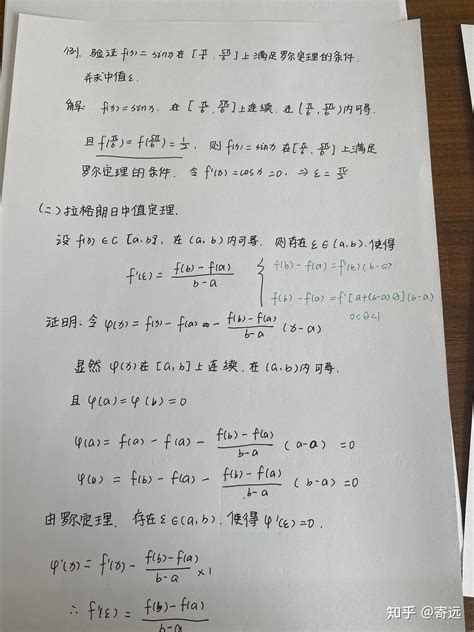 例. 验证 f(x) = sinx 在 [π/6, 5π/6] 上满足罗尔定理的条件.
并求中值 ε.
解: f(x) = sinx. 在 [π/6, 5π/6] 上连续. 在 (π/6, 5π/6) 内可导.
且 f(π/6) = f(5π/6) = 1/2, 则 f(x) = sinx 在 [π/6, 5π/6] 上满足
罗尔定理的条件. 令 f'(x) = cosx = 0, ⇒ ε = π/2
(二) 拉格朗日中值定理.
设 f(x) ∈ C [a,b], 在 (a,b) 内可导. 则存在 ε ∈ (a,b). 使得
f'(ε) = (f(b) - f(a))/(b-a)
{ f(b) - f(a) = f'(ε)(b-a)
f(b) - f(a) = f'[a+(b-a)θ](b-a)
0<θ<1
证明: 令 φ(x) = f(x) - f(a) - (f(b) - f(a))/(b-a) (x-a)
显然 φ(x) 在 [a,b] 上连续. 在 (a,b) 内可导.
且 φ(a) = φ(b) = 0
φ(a) = f(a) - f(a) - (f(b) - f(a))/(b-a) (a-a) = 0
φ(b) = f(b) - f(a) - (f(b) - f(a))/(b-a) (b-a) = 0
由罗尔定理. 存在 ε ∈ (a,b). 使得 φ'(ε) = 0.
φ'(x) = f'(x) - (f(b) - f(a))/(b-a) ×1
∴ f'(ε) = (f(b) - f(a))/(b-a)
知乎 @寄远